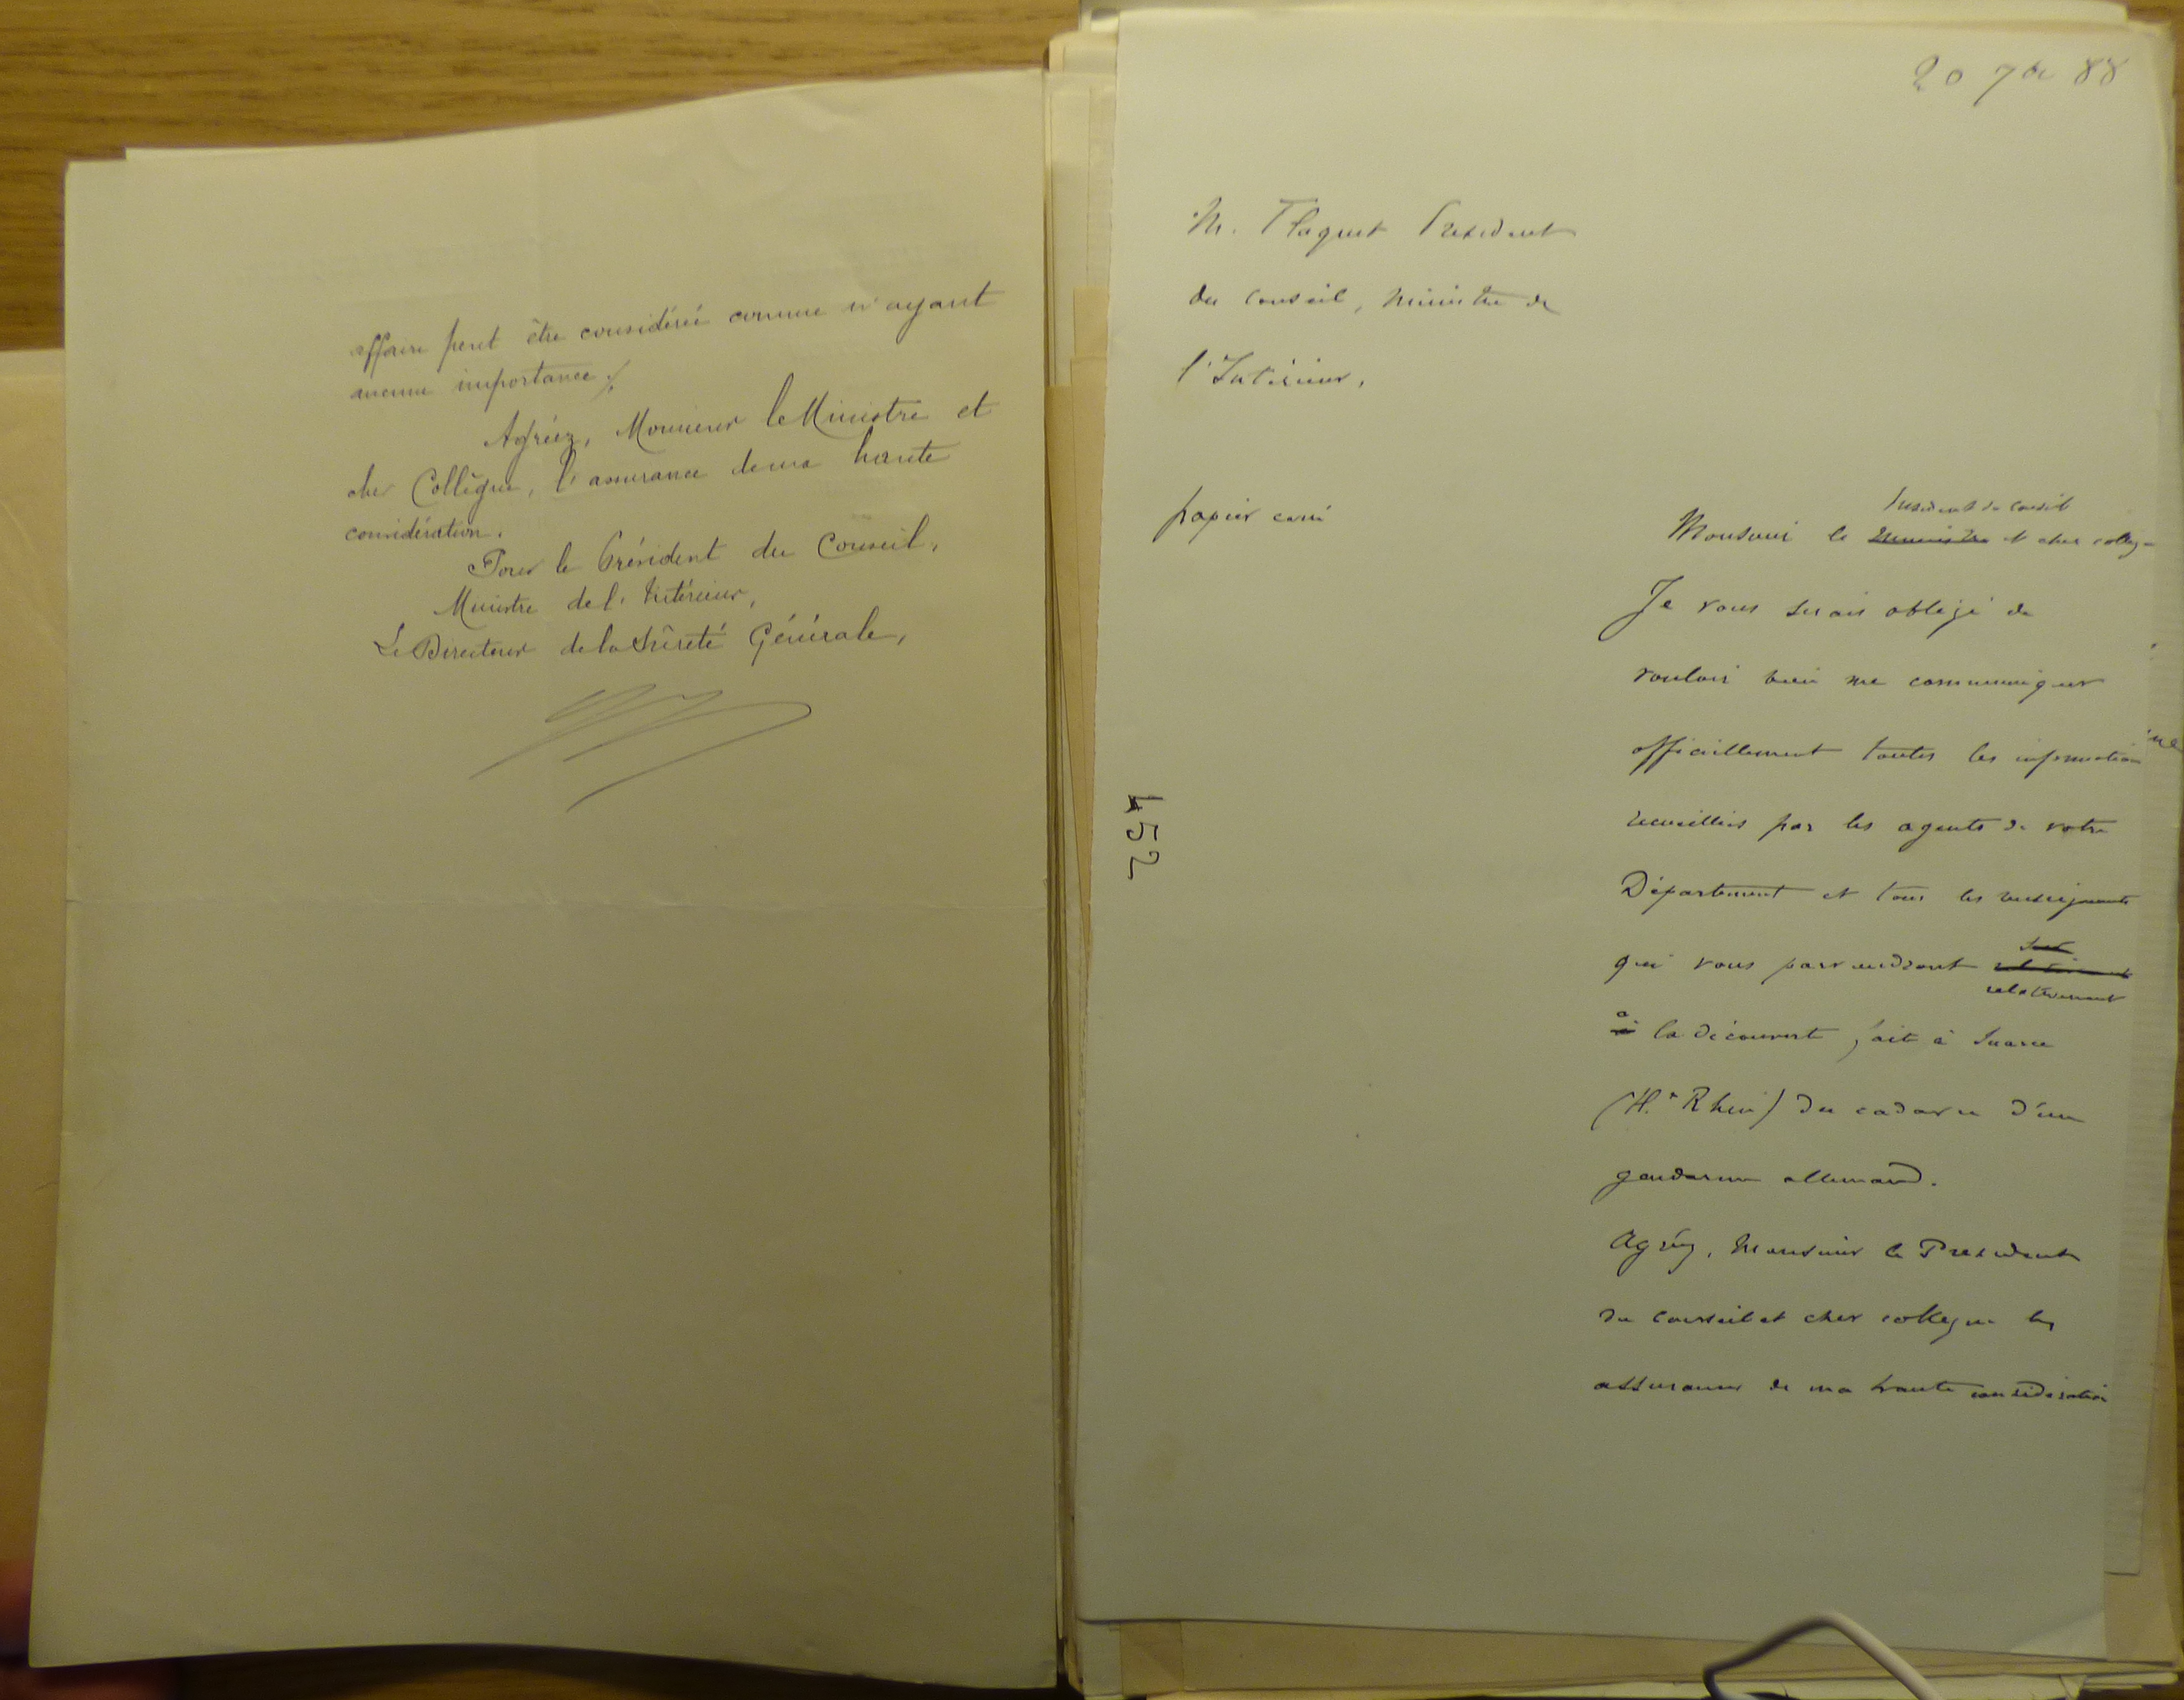 affaire peut être considérée comme n'ayant
aucune importance ./.
Agréez, Monsieur le Ministre et
cher Collègue, l'assurance de ma haute
considération.
Pour le Président du Conseil,
Ministre de l'Intérieur,
Le Directeur de la Sûreté Générale,
20 7bre 88
M. Floquet Président
du Conseil, Ministre de
l'Intérieur,
papier carré
Président du Conseil
Monsieur le Ministre et cher collègue
Je vous serais obligé de
vouloir bien me communiquer
officiellement toutes les informations
recueillies par les agents de votre
Département et tous les renseignements
sur
qui vous parviendront relativement
relativement
à la découverte faite à
(Ht Rhin) du cadavre d'un
gendarme allemand.
Agréez, Monsieur le Président
du Conseil et cher collègue les
assurances de ma haute considération
452